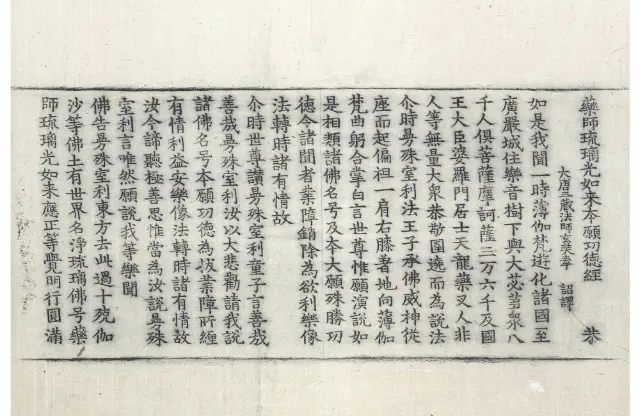 藥師琉璃光如来本願功德經 恭
大唐三蔵法師玄奘奉 詔譯
如是我聞一時薄伽梵遊化諸國至
廣嚴城住樂音樹下與大苾芻眾八
千人俱菩薩摩訶薩三万六千及國
王大臣婆羅門居士天龍藥叉人非
人等無量大眾恭敬圍遶而為說法
尒時曼殊室利法王子承佛威神從
座而起偏袒一肩右膝著地向薄伽
梵曲躬合掌白言世尊惟願演說如
是相類諸佛名号及本大願殊勝功
德令諸聞者業障銷除為欲利樂像
法轉時諸有情故
尒時世尊讚曼殊室利童子言善哉
善哉曼殊室利汝以大悲勸請我說
諸佛名号本願功德為拔業障所纏
有情利益安樂像法轉時諸有情故
汝今諦聽極善思惟當為汝說曼殊
室利言唯然願說我等樂聞
佛告曼殊室利東方去此過十殑伽
沙等佛土有世界名淨琉璃佛号藥
師琉璃光如来應正等覺明行圓滿